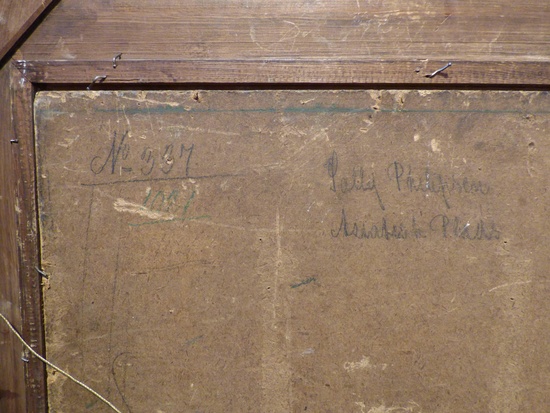 № 937
Sally Philipsen
Asiatisk Plads